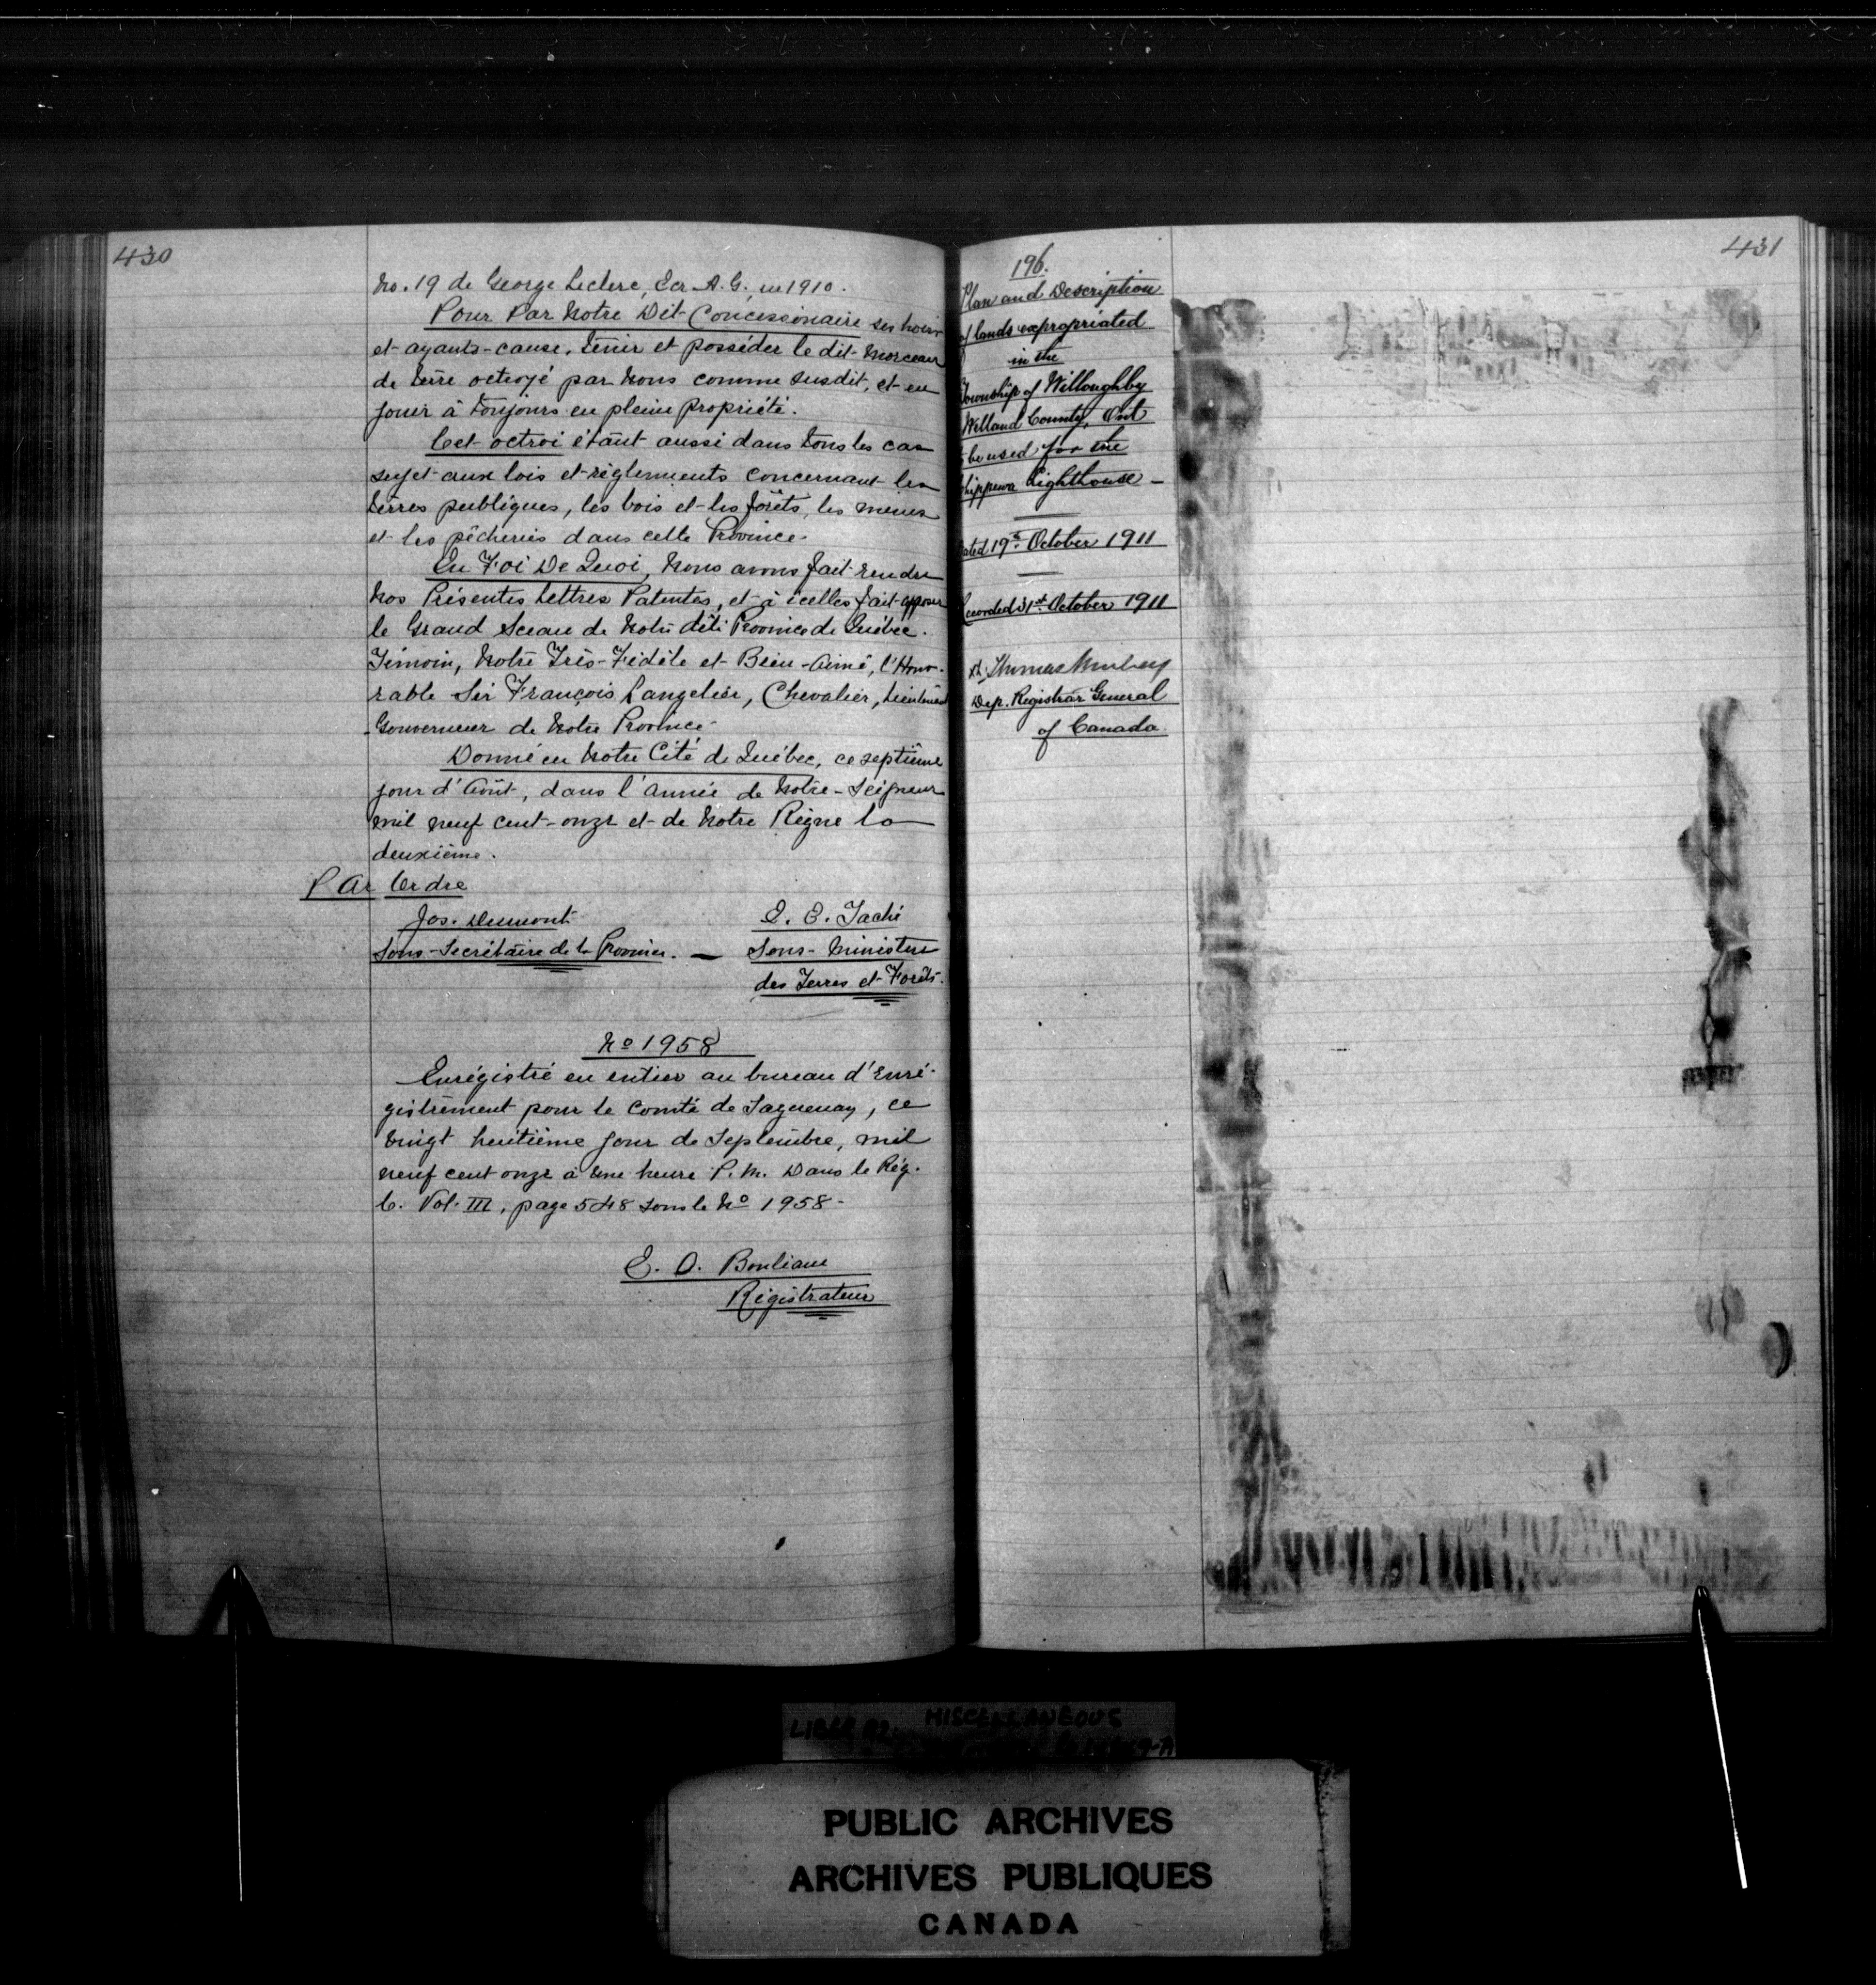 430
No. 19 de George Leclerc, Ecr A. G., en 1910.
Pour Par Notre Dit Concessionaire ses hoirs
et ayants-cause, tenir et posséder le dit morceau
de terre octroyé par Nous comme susdit, et en
jouir à toujours en pleine propriété.
Cet octroi étant aussi dans tous les cas
sujet aux lois et règlements concernant les
terres publiques, les bois et les forêts, les mines
et les pêcheries dans cette Province.
En Foi De Quoi, Nous avons fait rendre
Nos Présentes Lettres Patentes, et à icelles fait apposer
le Grand Sceau de Notre dite Province de Québec.
Témoin, Notre Très-Fidèle et Bien-Aimé, l'Hono-
rable Sir François Langelier, Chevalier, Lieutenant
Gouverneur de Notre Province.
Donné en Notre Cité de Québec, ce septième
jour d'Août, dans l'année de Notre-Seigneur
mil neuf cent-onze et de Notre Règne la
deuxième.
Par Ordre
Jos. Dumont
Sous-Secrétaire de la Province. —
E. E. Taché
Sous-Ministre
des Terres et Forêts.
No 1958
Enrégistré en entier au bureau d'Enré-
gistrement pour le Comté de Saguenay, ce
vingt huitième jour de Septembre, mil
neuf cent onze à une heure P. M. Dans le Rég.
C. Vol. III, page 548 sous le No 1958-
E. O. Bouliane
Régistrateur
431
196.
Plan and Description
of lands expropriated
in the
Township of Willoughby
Welland County, Ont
be used for the
hippewa Lighthouse -
ated 19th October 1911
Recorded 31st October 1911
Thomas Mulvey
Dep. Registrar General
of Canada.
MISCELLANEOUS
PUBLIC ARCHIVES
ARCHIVES PUBLIQUES
CANADA